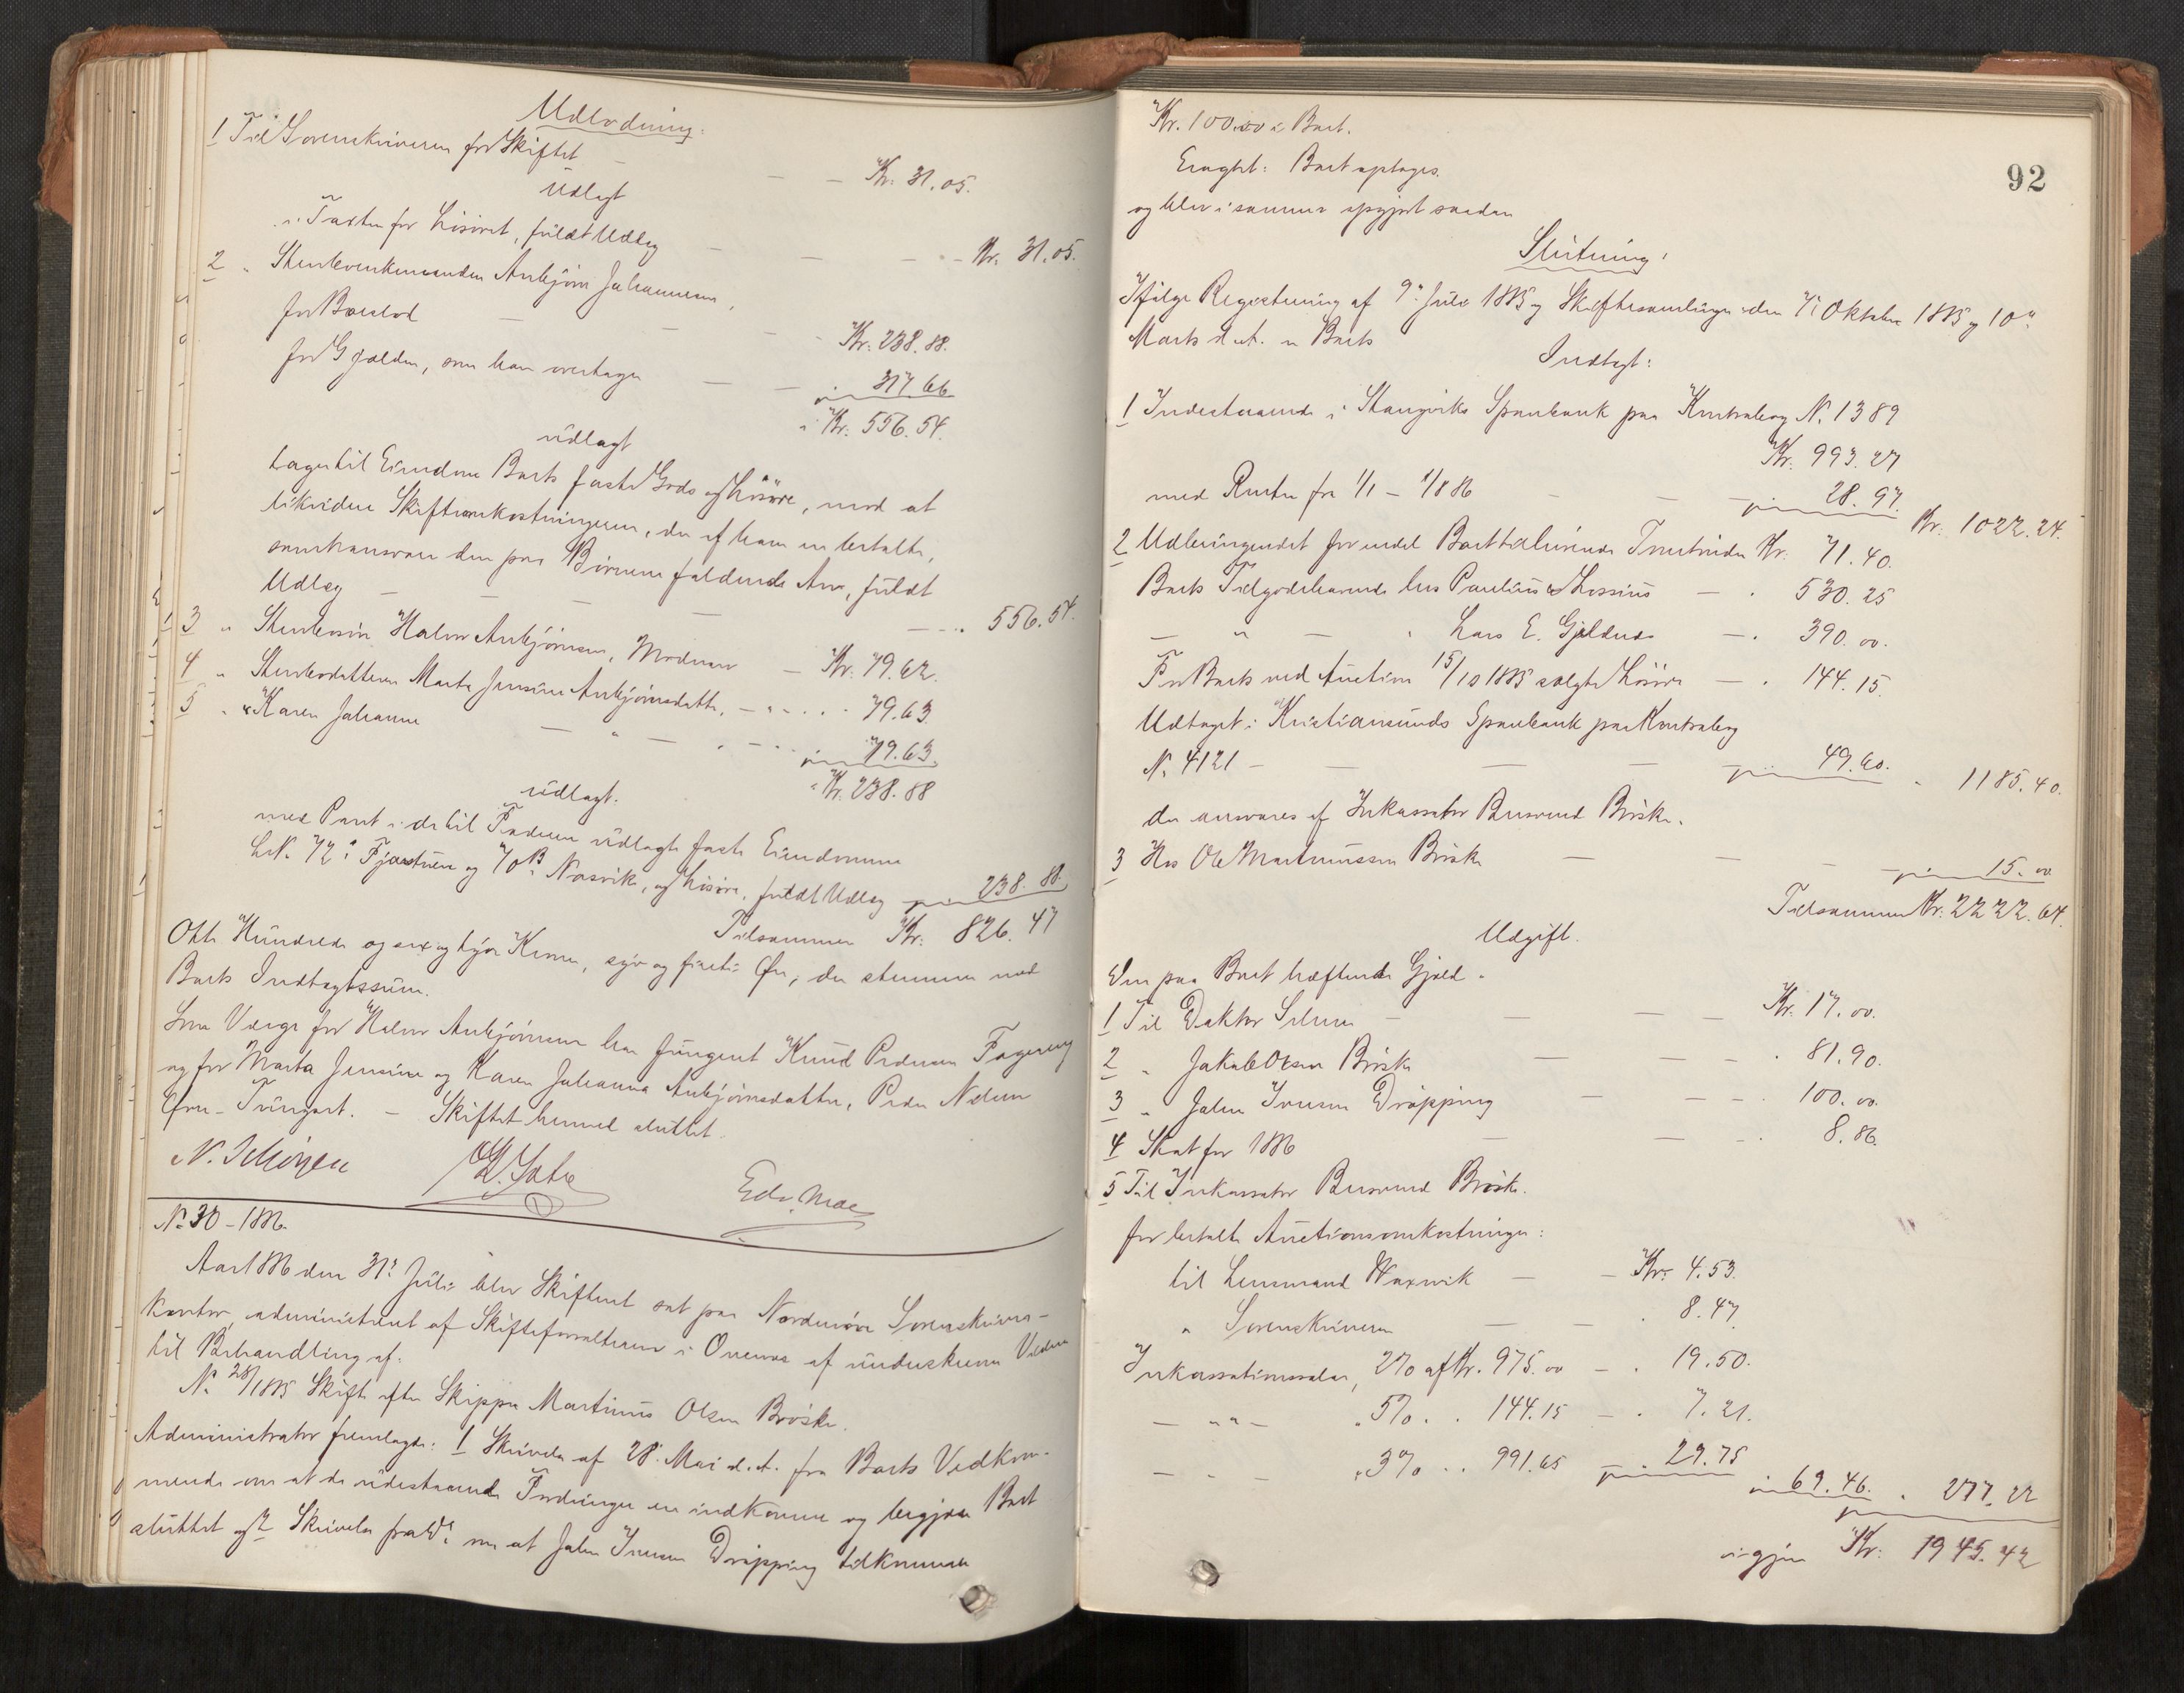 Udlodning:
1 Til Sorenskriveren for Skiftet — — — Kr. 31.05.
Udlagt
i Taxten for Lösöret, fuldt Udlæg — — — Kr. 31.05.
2 " Stervbenkemanden Anbjörn Johannesen,
for Boeslod — — — Kr. 238.88.
for Gjælden, som han overtager — — " 317.66
" Kr. 556.54.
udlagt
tages til Eiendom Boets faste Gods og Lösöre, mod at
likvidere Skifteomkostningerne, der af ham er betalte,
samt ansvare den paa Börnene faldende Arv, fuldt
Udlæg — — — — — " 556.54.
3 " Stervbosön Halvor Anbjörnsen, Modrenarv — Kr. 79.62.
4 " Stervbodatteren Marta Jensine Anbjörnsdatter, — " — " 79.63.
5 " " Karen Johanna — " — " 79.63.
" Kr. 238.88
udlagt.
med Pant i de til Faderen udlagte faste Eiendomme
L.N. 72 i Fjærstuen og 70B Nasvik, og Lösöre, fuldt Udlæg 238.88
Tilsammen Kr. 826.47
Otte Hundrede og sex og tyve Kroner, syv og firti Öre, der stemmer med
Boets Indtægtssum.
Som Værge for Halvor Anbjörnsen har fungeret Knud Pedersen Fageræng
og for Marta Jensine og Karen Johanna Anbjörnsdatter, Peder Nilsen
Övre-Tüngart. — Skiftet hermed sluttet.
N. Schöyen Edv. Moe
No 30 - 1886.
Aar 1886 den 31te Juli blev Skifteret sat paa Nordmöre Sorenskriver-
kontor, administreret af Skifteforvalteren i Overvær af underskrevne Vidner
til Behandling af:
No 28/1885 Skifte efter Skipper Martinus Olsen Bröske.
Administrator fremlagde: 1 Skrivelse af 28. Mai d.A. fra Boets Vedkom-
mende om at de udestaaende Fordringer er indkomne og begjære Boet
sluttet og 2 Skrivelse fra Do om at Johan Iversen Dröpping tilkommer
92
Kr. 100.00 i Boet.
Eragtet: Boet optages.
og blev i samme opgjort saadan
Slutning:
Ifölge Registrering af 9de Juli 1885 og Skiftesamlinger den 7de Oktober 1885 og 10de
Marts d.A. er Boets
Indtægt:
1 Indestaaende i Stangviks Sparebank paa Kontrabog No. 1389
Kr. 993.27
med Renter fra 1/1 — 1/8 86 — — — 28.97.
Kr. 1022.24.
2 Udbringendet for endel Boet tilhörende Fartöider Kr. 71.40.
Boets Tilgodehavende hos Paulius & Lossius — " 530.25
— " — " Lars E. Gjeldnes — " 390.00.
For Boets ved Auction 15/10 1885 solgte Lösöre — " 144.15.
Udtaget i Kristiansunds Sparebank paa Kontrabog
No. 4121 — — — — 49.60. " 1185.40.
der ansvares af Inkassator Bersvend Bröske.
3 Hos Ole Martinussen Bröske — — — 15.00
Tilsammen Kr. 2222.64.
Udgift.
Den paa Boet hæftende Gjæld.
1 Til Doktor — — — Kr. 17.00.
2 " Jakob Olsen Bröske — — — " 81.90.
3 " Johan Iversen Dröpping — — — " 100.00.
4 Skat for 1886 — — — " 8.86.
5 Til Inkassator Bersvend Bröske.
for betalte Auctionsomkostninger:
til Lensmand Waxvik — — Kr. 4.53.
" Sorenskriveren — — " 8.47.
Inkassationssalær, 2% af Kr. 975.00 — " 19.50.
— " " — " 5% " " 144.15 — " 7.21.
— " — " 3% " " 991.65 — " 29.75
" 69.46. " 277.22
igjen Kr. 1945.42